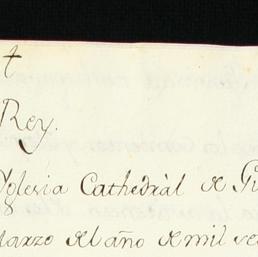 Rey.
Yglesia Cathedràl de
Marzo del año de mil